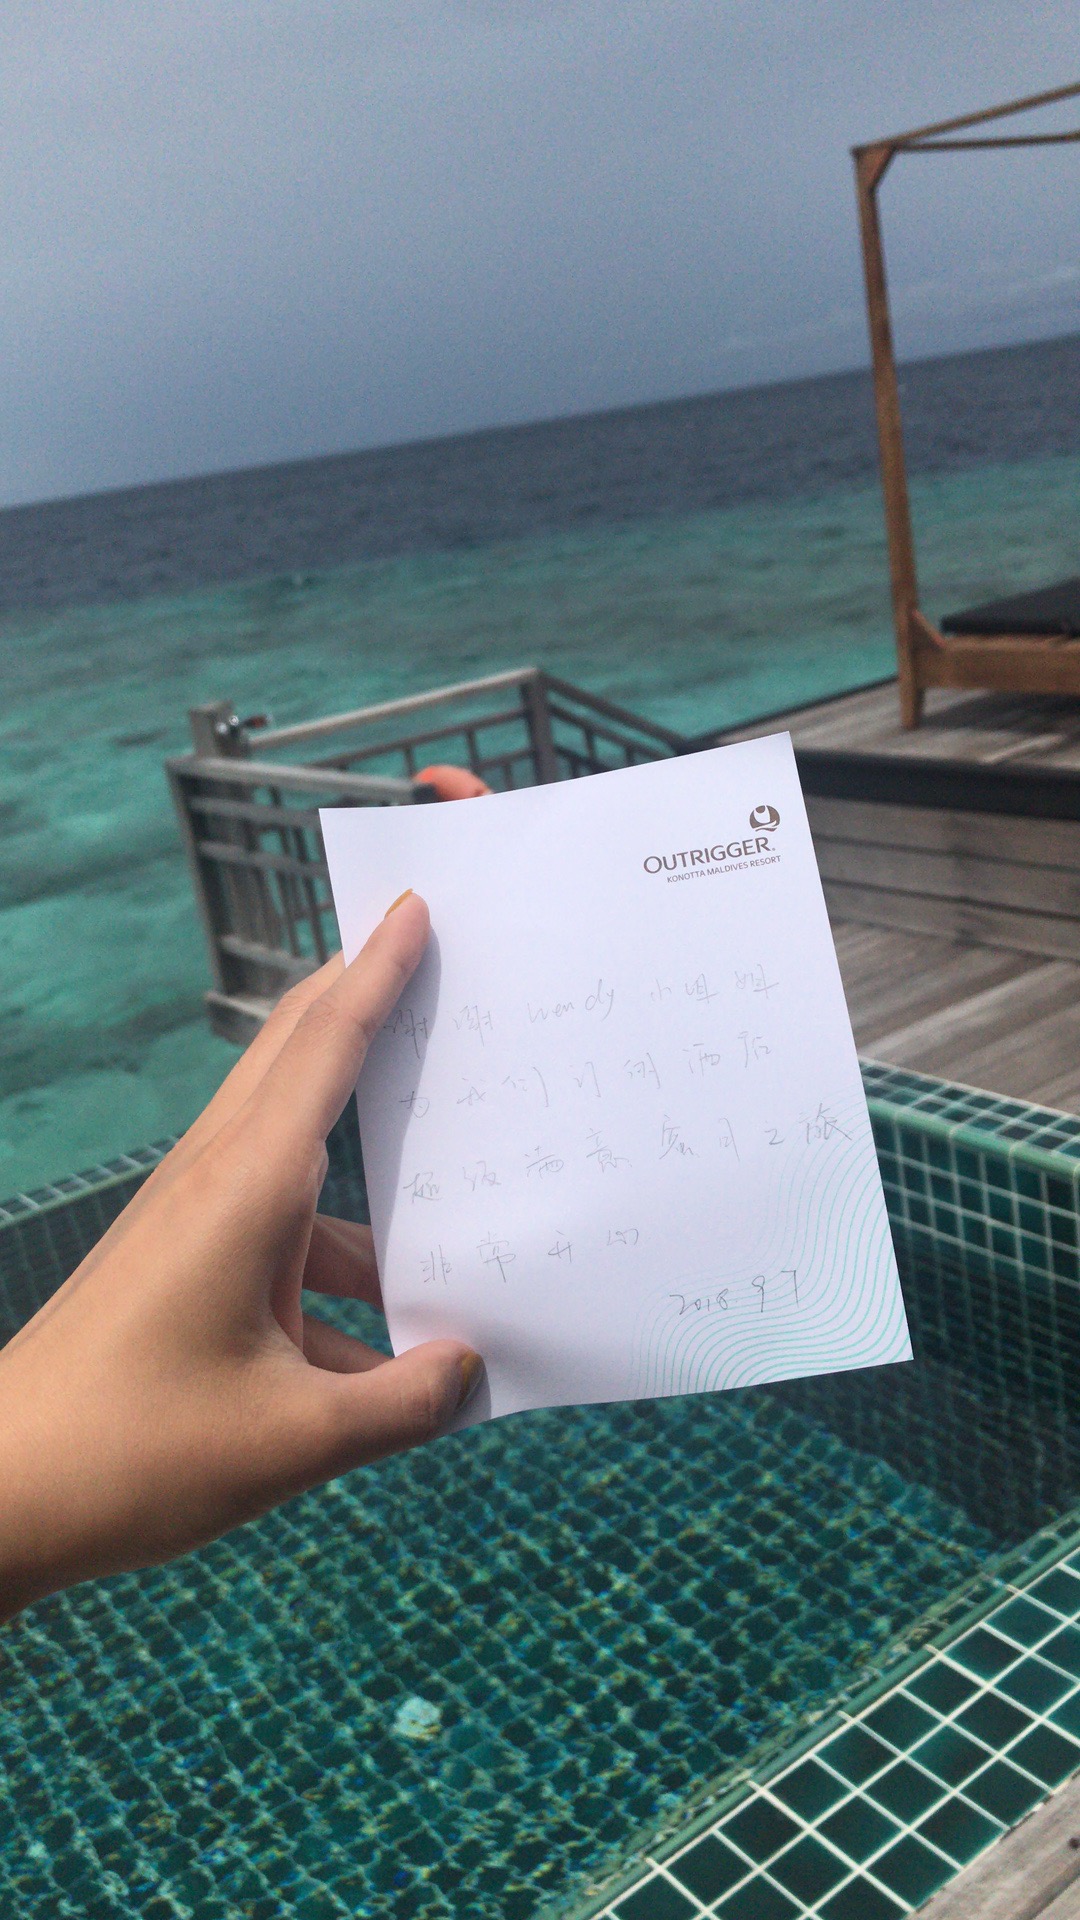 OUTRIGGER®
KONOTTA MALDIVES RESORT
谢谢 Wendy 小姐姐
为我们订的酒店
超级满意 蜜月之旅
非常开心
2018 9 7